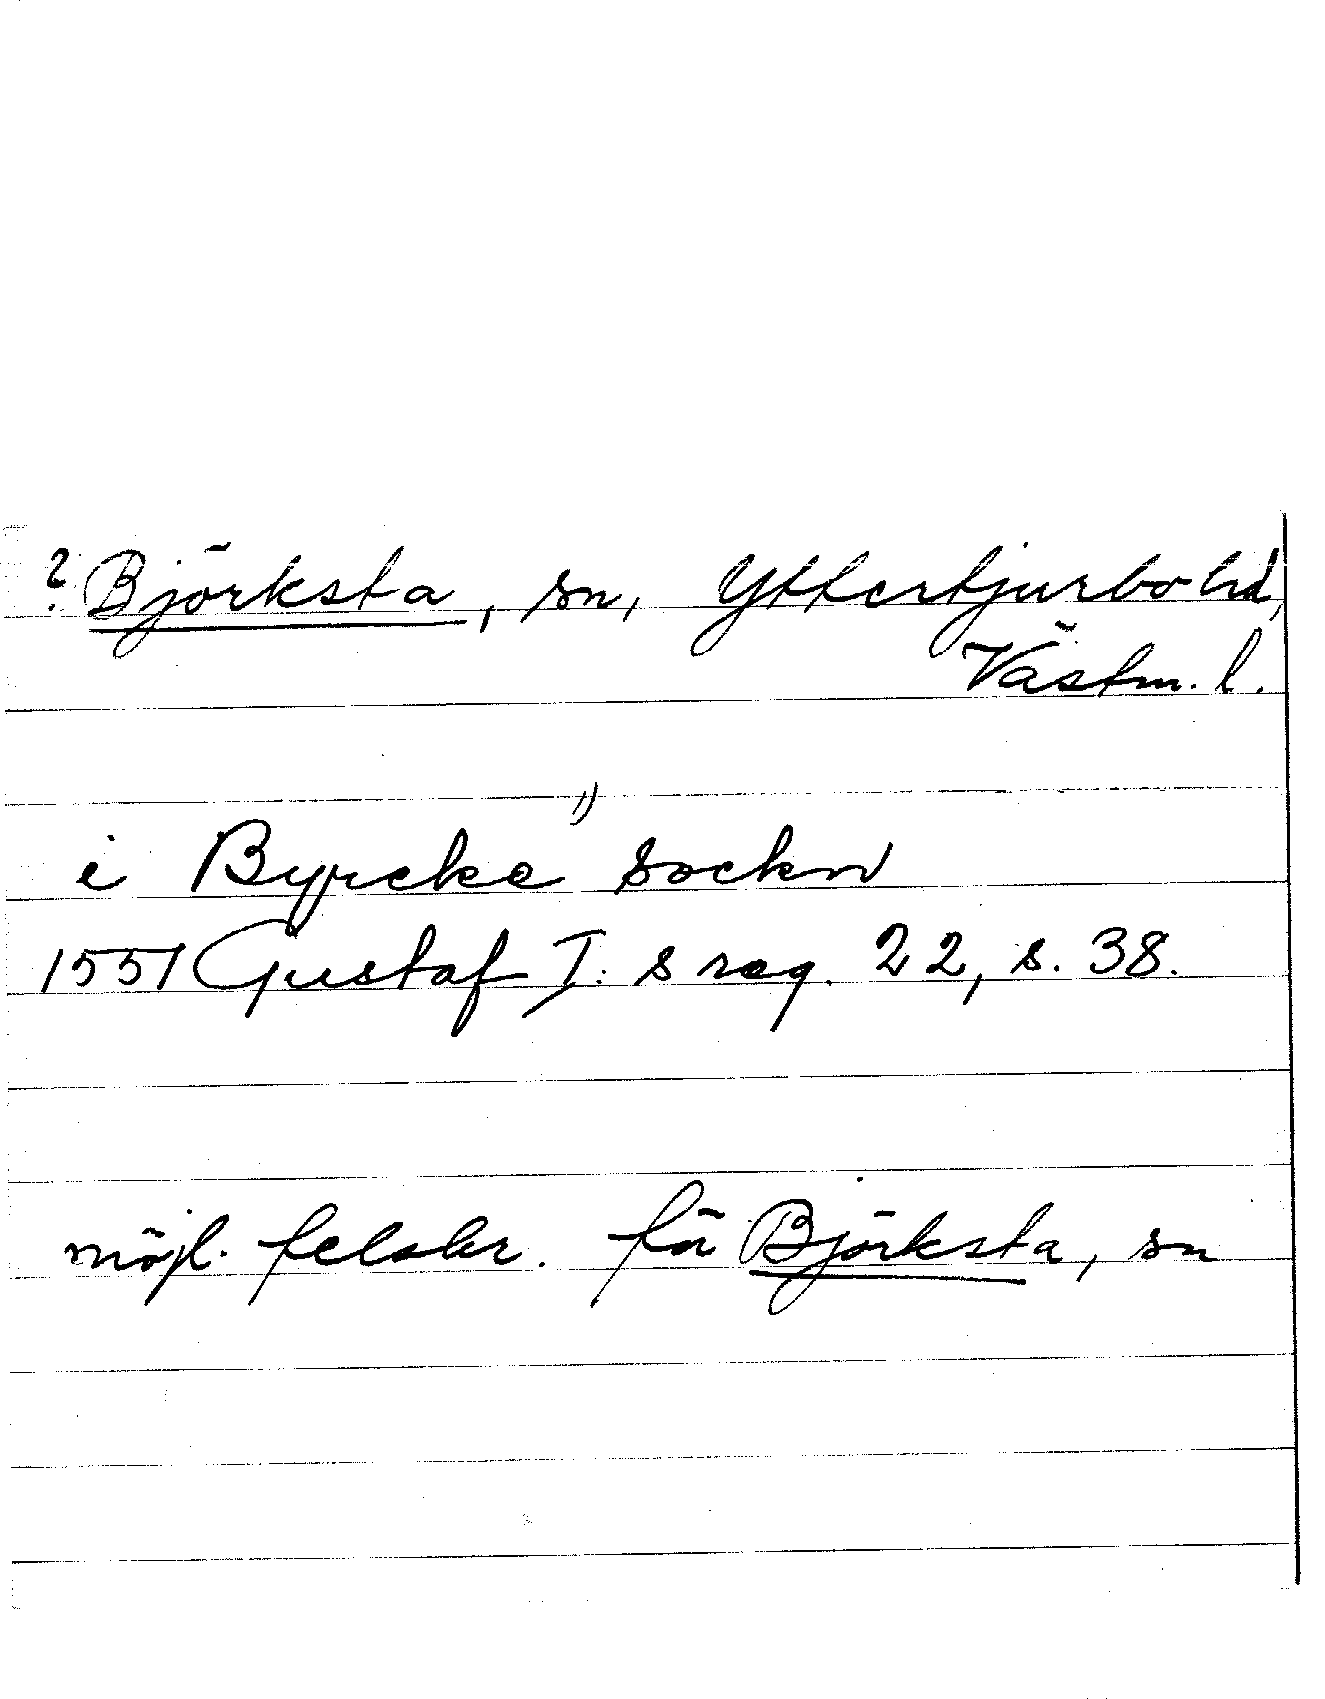 ? Björksta, sn, Yttertjurbo hd,
Västm. l.
i Byrcke" sockn
1551 Gustaf I:s reg. 22, s. 38.
möjl. felskr. för Björksta, sn